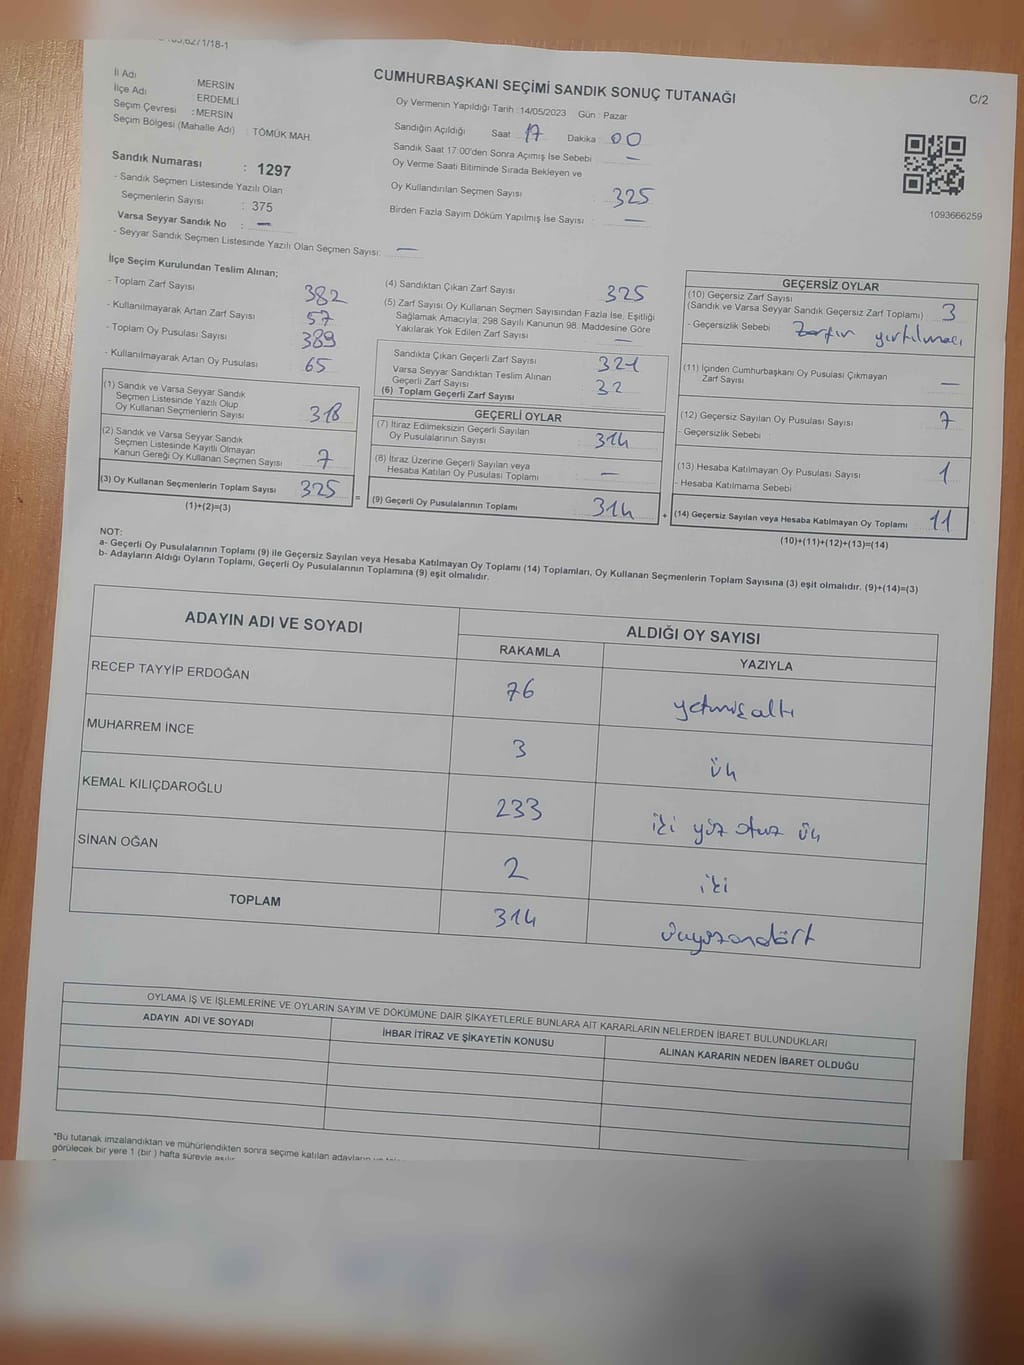 CUMHURBAŞKANI SEÇİMİ SANDIK SONUÇ TUTANAĞI
C/2
İl Adı MERSİN
İlçe Adı ERDEMLİ
Seçim Çevresi : MERSİN
Seçim Bölgesi (Mahalle Adı) : TÖMÜK MAH.
Sandık Numarası : 1297
- Sandık Seçmen Listesinde Yazılı Olan
Seçmenlerin Sayısı : 375
Varsa Seyyar Sandık No : —
- Seyyar Sandık Seçmen Listesinde Yazılı Olan Seçmen Sayısı: —
Oy Vermenin Yapıldığı Tarih :14/05/2023 Gün : Pazar
Sandığın Açıldığı Saat 17 Dakika 00
Sandık Saat 17:00'den Sonra Açımış İse Sebebi —
Oy Verme Saati Bitiminde Sırada Bekleyen ve
Oy Kullandırılan Seçmen Sayısı : 325
Birden Fazla Sayım Döküm Yapılmış İse Sayısı : —
1093666259
İlçe Seçim Kurulundan Teslim Alınan;
- Toplam Zarf Sayısı 382
- Kullanılmayarak Artan Zarf Sayısı 57
- Toplam Oy Pusulası Sayısı 389
- Kullanılmayarak Artan Oy Pusulası 65
(1) Sandık ve Varsa Seyyar Sandık
Seçmen Listesinde Yazılı Olup
Oy Kullanan Seçmenlerin Sayısı 318
(2) Sandık ve Varsa Seyyar Sandık
Seçmen Listesinde Kayıtlı Olmayan
Kanun Gereği Oy Kullanan Seçmen Sayısı 7
(3) Oy Kullanan Seçmenlerin Toplam Sayısı 325
(1)+(2)=(3)
(4) Sandıktan Çıkan Zarf Sayısı 325
(5) Zarf Sayısı Oy Kullanan Seçmen Sayısından Fazla İse, Eşitliği
Sağlamak Amacıyla, 298 Sayılı Kanunun 98. Maddesine Göre
Yakılarak Yok Edilen Zarf Sayısı —
Sandıkta Çıkan Geçerli Zarf Sayısı 321
Varsa Seyyar Sandıktan Teslim Alınan
Geçerli Zarf Sayısı 32
(6) Toplam Geçerli Zarf Sayısı
GEÇERLİ OYLAR
(7) İtiraz Edilmeksizin Geçerli Sayılan
Oy Pusulalarının Sayısı 314
(8) İtiraz Üzerine Geçerli Sayılan veya
Hesaba Katılan Oy Pusulası Toplamı —
= (9) Geçerli Oy Pusulalarının Toplamı 314
GEÇERSİZ OYLAR
(10) Geçersiz Zarf Sayısı
(Sandık ve Varsa Seyyar Sandık Geçersiz Zarf Toplamı) 3
- Geçersizlik Sebebi : Zarfın yırtılması
(11) İçinden Cumhurbaşkanı Oy Pusulası Çıkmayan
Zarf Sayısı —
(12) Geçersiz Sayılan Oy Pusulası Sayısı 7
- Geçersizlik Sebebi :
(13) Hesaba Katılmayan Oy Pusulası Sayısı 1
- Hesaba Katılmama Sebebi
+ (14) Geçersiz Sayılan veya Hesaba Katılmayan Oy Toplamı 11
(10)+(11)+(12)+(13)=(14)
NOT:
a- Geçerli Oy Pusulalarının Toplamı (9) ile Geçersiz Sayılan veya Hesaba Katılmayan Oy Toplamı (14) Toplamları, Oy Kullanan Seçmenlerin Toplam Sayısına (3) eşit olmalıdır. (9)+(14)=(3)
b- Adayların Aldığı Oyların Toplamı, Geçerli Oy Pusulalarının Toplamına (9) eşit olmalıdır.
ADAYIN ADI VE SOYADI ALDIĞI OY SAYISI
RAKAMLA YAZIYLA
RECEP TAYYİP ERDOĞAN 76 yetmişaltı
MUHARREM İNCE 3 üç
KEMAL KILIÇDAROĞLU 233 iki yüz otuz üç
SİNAN OĞAN 2 iki
TOPLAM 314 üçyüzondört
OYLAMA İŞ VE İŞLEMLERİNE VE OYLARIN SAYIM VE DÖKÜMÜNE DAİR ŞİKAYETLERLE BUNLARA AİT KARARLARIN NELERDEN İBARET BULUNDUKLARI
ADAYIN ADI VE SOYADI İHBAR İTİRAZ VE ŞİKAYETİN KONUSU ALINAN KARARIN NEDEN İBARET OLDUĞU
*Bu tutanak imzalandıktan ve mühürlendikten sonra seçime katılan adayların
görülecek bir yere 1 (bir ) hafta süreyle asılır